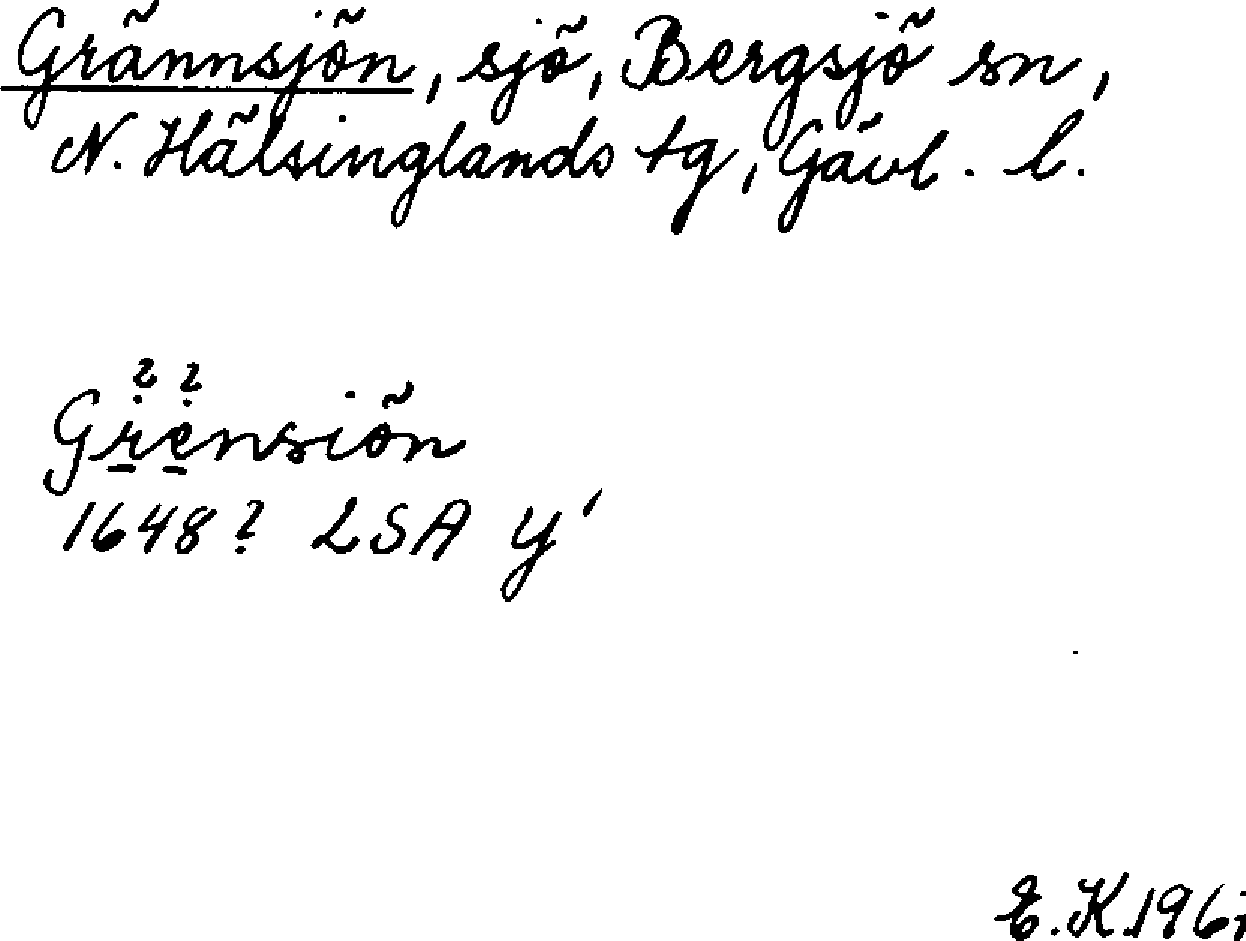 Grännsjön, sjö, Bergsjö sn,
N. Hälsinglands tg, Gävl. l.
? ?
Grensiön
1648? LSA Y'
E.K.